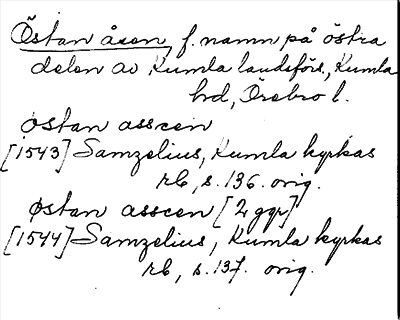 Östan åsen, f. namn på östra
delen av Kumla landsförs., Kumla
hd, Örebro l.
østan asscen
[1543] Samzelius, Kumla kyrkas
rb, s. 136. orig.
østan asscen [2 ggr]
[1544] Samzelius, Kumla kyrkas
rb, s. 137. orig.